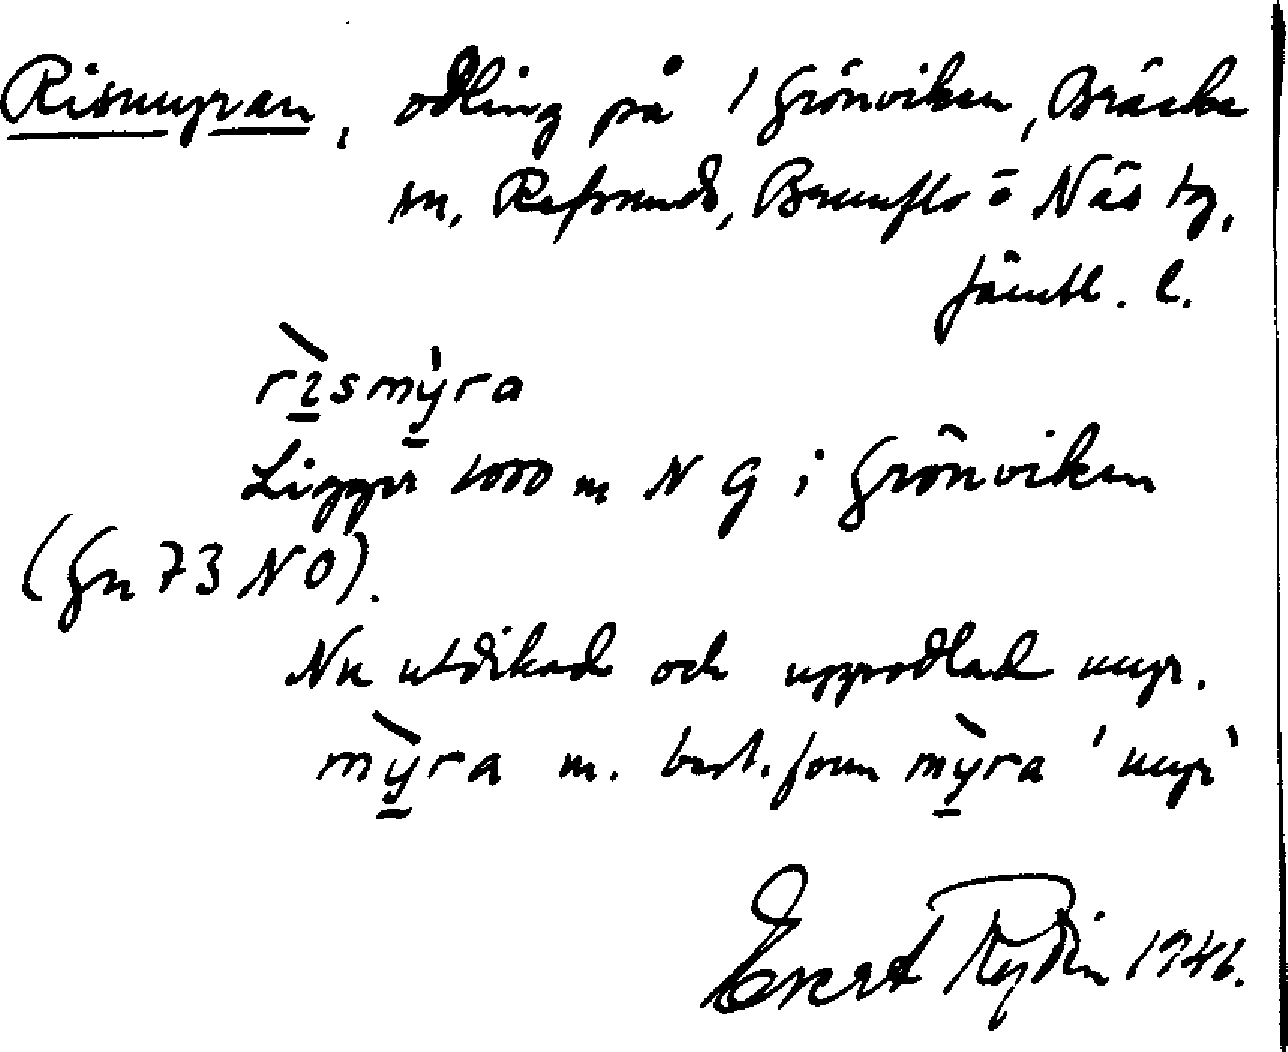 Rismyran, odling på 1 Grönviken, Bräcke
sn, Refsunds, Brunflo o Näs tg,
Jämtl. l.
rìsmỳra
Ligger 1000 m N G i Grönviken
(Gn 73 NO).
Nu utdikad och uppodlad myr.
mỳra m. best. form mỳra 'myr'
Evert Rydin 1946.